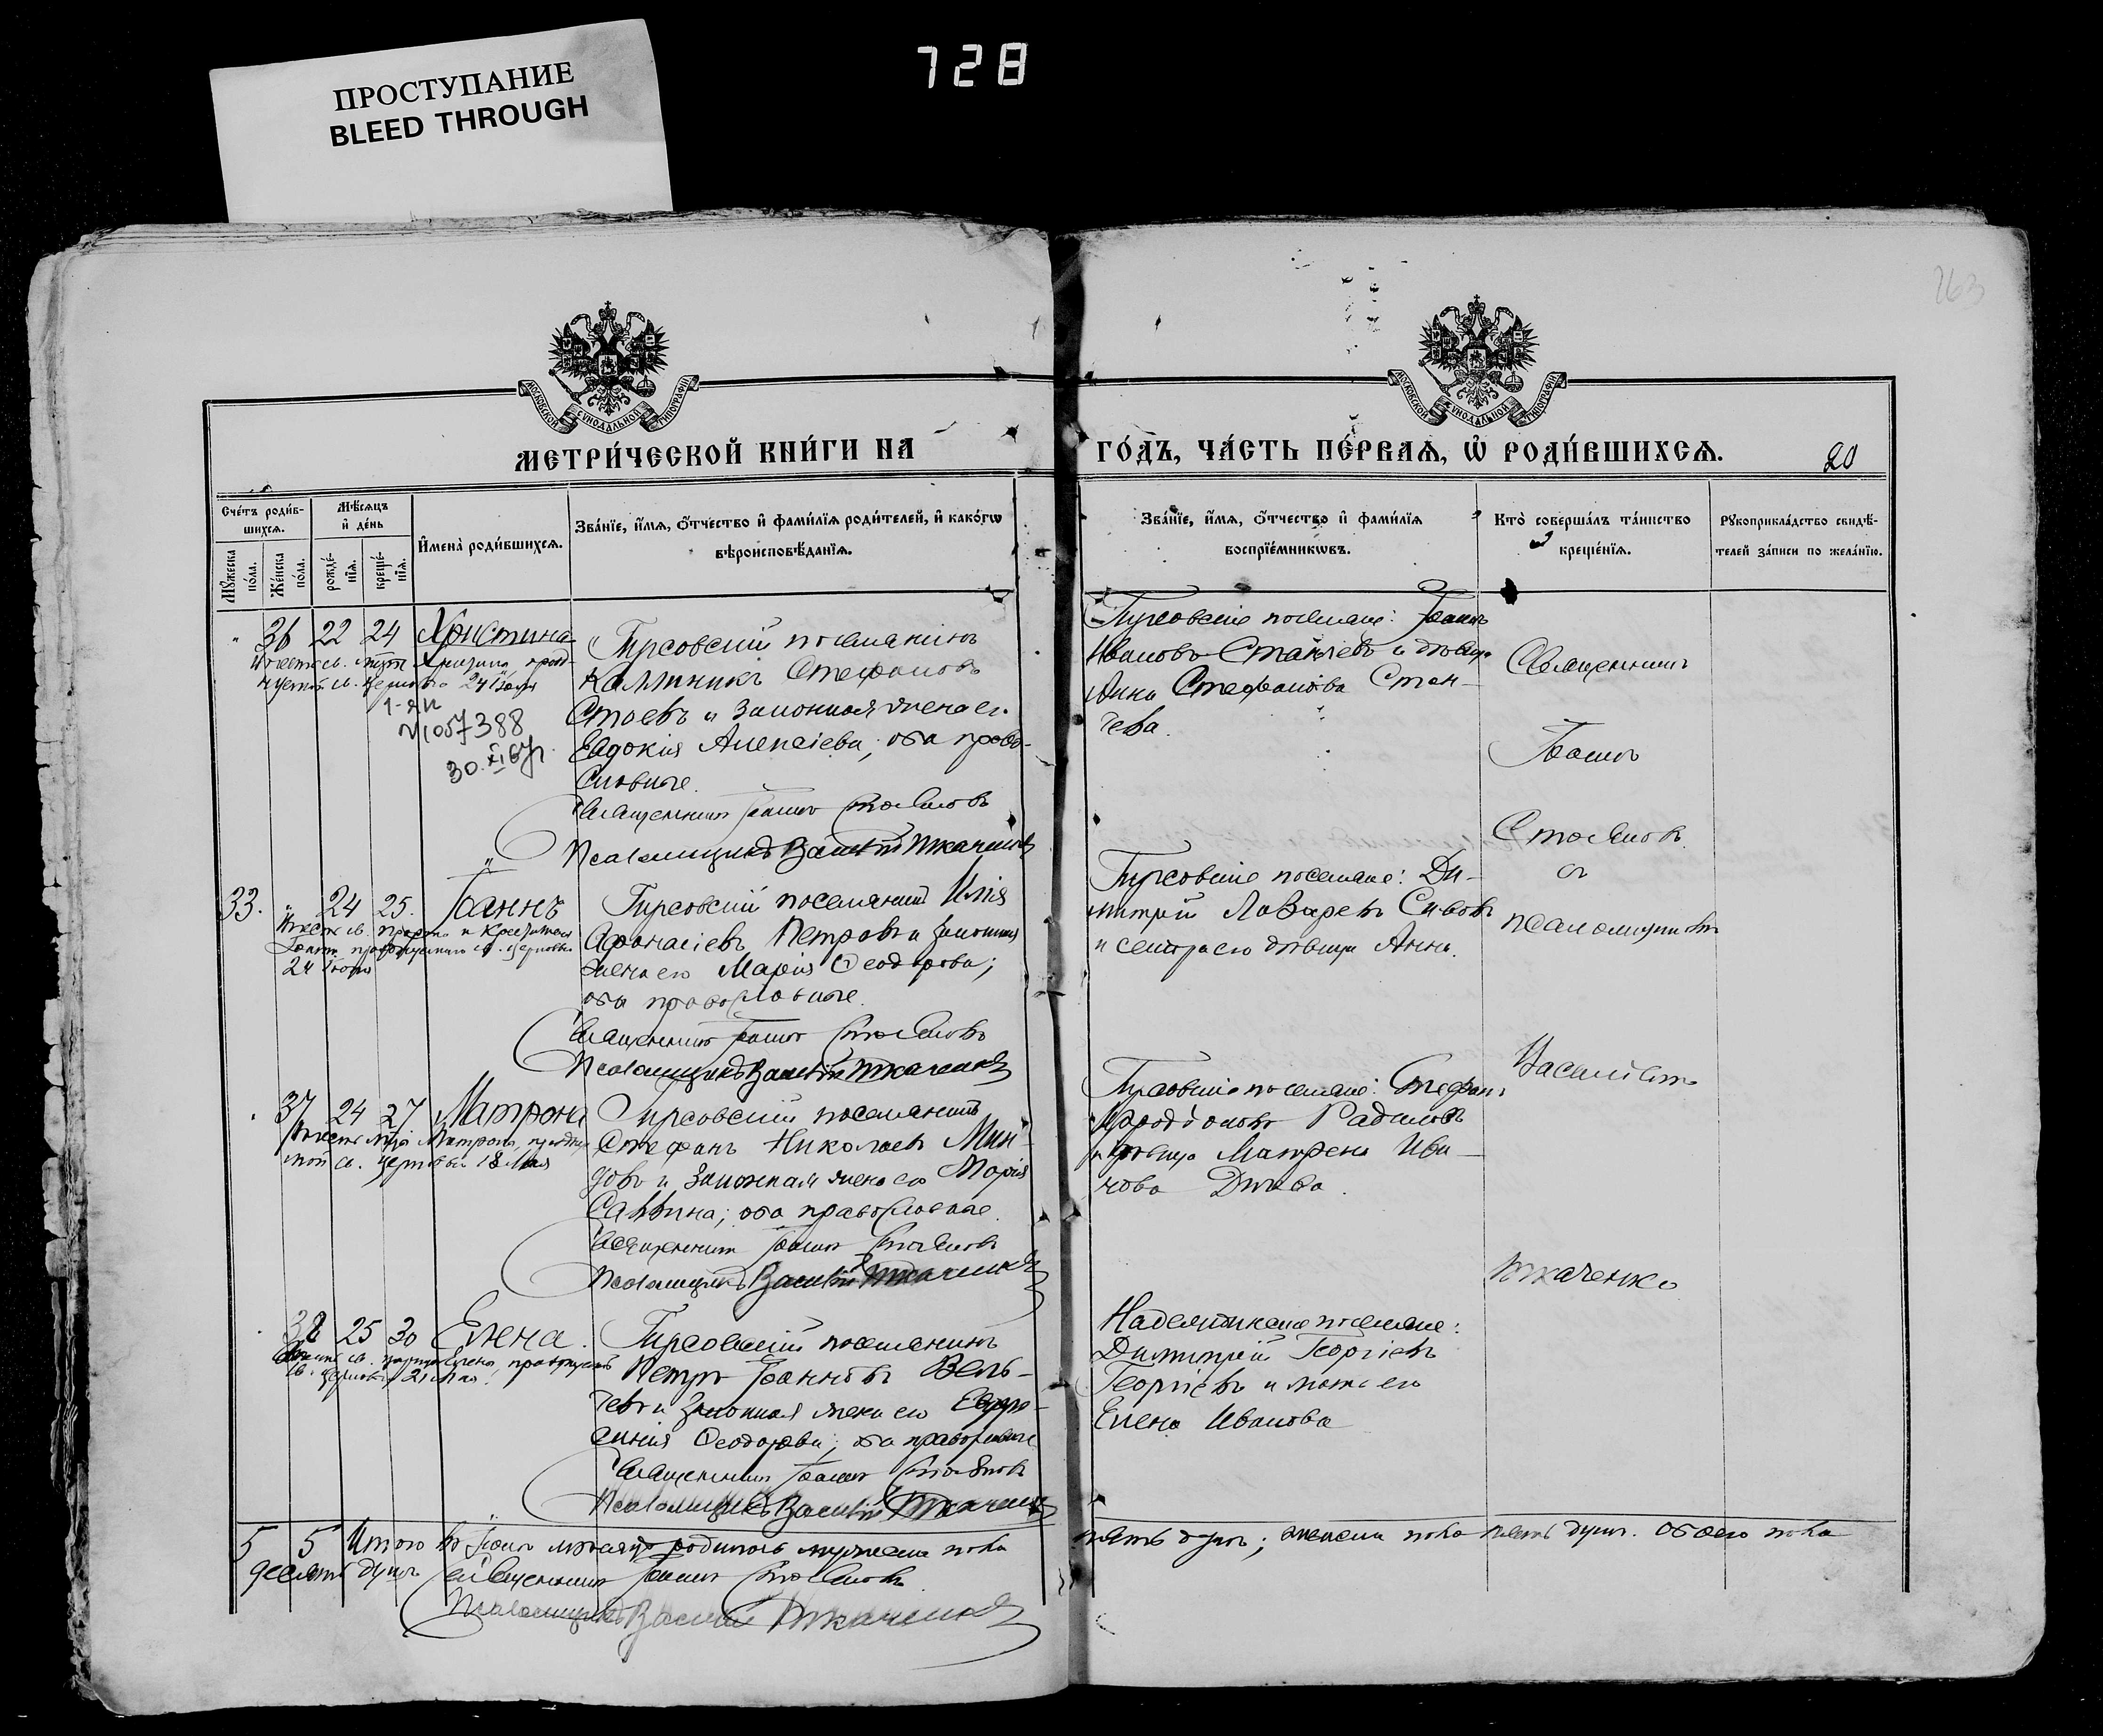 ПРОСТУПАНИЕ
BLEED THROUGH
728
263
МОСКОВСКОЙ СУНОДАЛЬНОЙ ТИПОГРАФІИ
МОСКОВСКОЙ СУНОДАЛЬНОЙ ТИПОГРАФІИ
МЕТРИ́ЧЕСКОЙ КНИ́ГИ НА
ГО́ДЪ, ЧА́СТЬ ПЕ́РВАѦ, Ѡ҆ РОДИ́ВШИХСѦ.
20
Сче́тъ роди́в-
шихсѧ.
Мꙋ́жеска по́ла.
Же́нска по́ла.
Мѣ́сѧцъ
и҆ де́нь
рожде́-
нїѧ.
креще́-
нїѧ.
И҆мена̀ роди́вшихсѧ.
Зва́нїе, и҆́мѧ, ѻ҆́тчество и҆ фами́лїѧ роди́телей, и҆ како́гѡ
вѣроисповѣ́данїѧ.
Зва́нїе, и҆́мѧ, ѻ҆́тчество и҆ фами́лїѧ
воспрїе́мникѡвъ.
Кто̀ соверша́лъ та́инство
креще́нїѧ.
Рꙋкоприкла́дство свидѣ́-
телей за́писи по жела́нїю.
36 22 24 Христина
1057388
30.XI 67г.
Гирсовскій поселянинъ
Каллиникъ Стефановъ
Стоевъ и законная жена его
Евдокія Алексіева; оба право-
славные.
Священникъ Іоаннъ Стояновъ
Псаломщикъ Василій Ткаченко
Гирсовскіе поселяне: Іоаннъ
Ивановъ Станчевъ и дѣвица
Анна Стефанова Стан-
чева.
Священникъ
Іоаннъ
Стояновъ
съ
псаломщикомъ
Василіемъ
Ткаченко
33. 24 25. Іоаннъ
24 Іюня
Гирсовскій поселянинъ Илія
Афанасіевъ Петровъ и законная
жена его Марія Ѳеодорова;
оба православные.
Священникъ Іоаннъ Стояновъ
Псаломщикъ Василій Ткаченко
Гирсовскіе поселяне: Ди-
митрій Лазаревъ Сивовъ
и сестра его дѣвица Анна.
37 24 27 Матрона
Гирсовскій поселянинъ
Стефанъ Николаевъ Мин-
човъ и законная жена его Марія
Саввина; оба православные.
Священникъ Іоаннъ Стояновъ
Псаломщикъ Василій Ткаченко
Гирсовскіе поселяне: Стефанъ
Радиловъ
и дѣвица Матрена Ива-
нова
38 25 30 Елена.
Гирсовскій поселянинъ
Петръ Іоанновъ Вель-
чевъ и законная жена его Евфро-
синія Ѳеодорова; оба православные
Священникъ Іоаннъ Стояновъ
Псаломщикъ Василій Ткаченко
поселяне:
Димитрій Георгіевъ
Георгіевъ и мать его
Елена Иванова
5 5 Итого въ Іюнѣ мѣсяцѣ родилось мужеска пола
пять душъ; женска пола пять душъ. Обоего пола
десять душъ Священникъ Іоаннъ Стояновъ
Псаломщикъ Василій Ткаченко